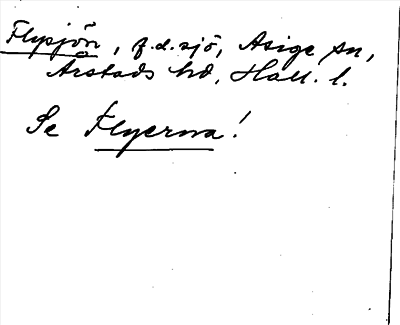 Flysjön, f.d. sjö, Asige sn,
Årstads hd, Hall. l.
Se Flyerna!